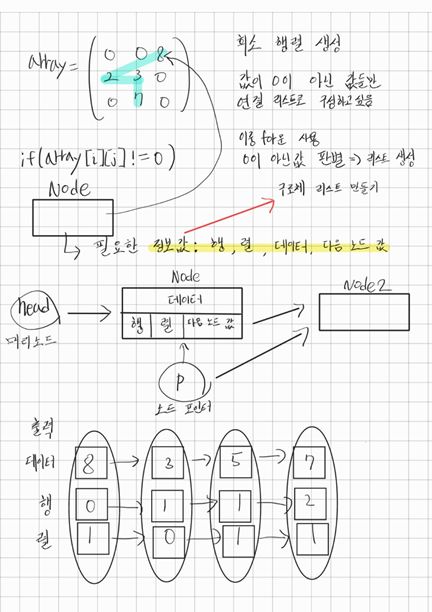 희소 행렬 생성
array =
0 0 8
2 3 0
0 7 0
값이 0이 아닌 값들만
연결 리스트로 구성하고 싶음
이중 for문 사용
if(array[i][j] != 0)
0이 아닌값 판별 => 리스트 생성
Node
구조체 리스트 만들기
필요한 정보값: 행, 렬, 데이터, 다음 노드 값
Node
Node2
데이터
head
행 렬 다음 노드 값
머리노드
P
노드 포인터
출력
데이터 8 3 5 7
행 0 1 1 2
렬 1 0 1 1